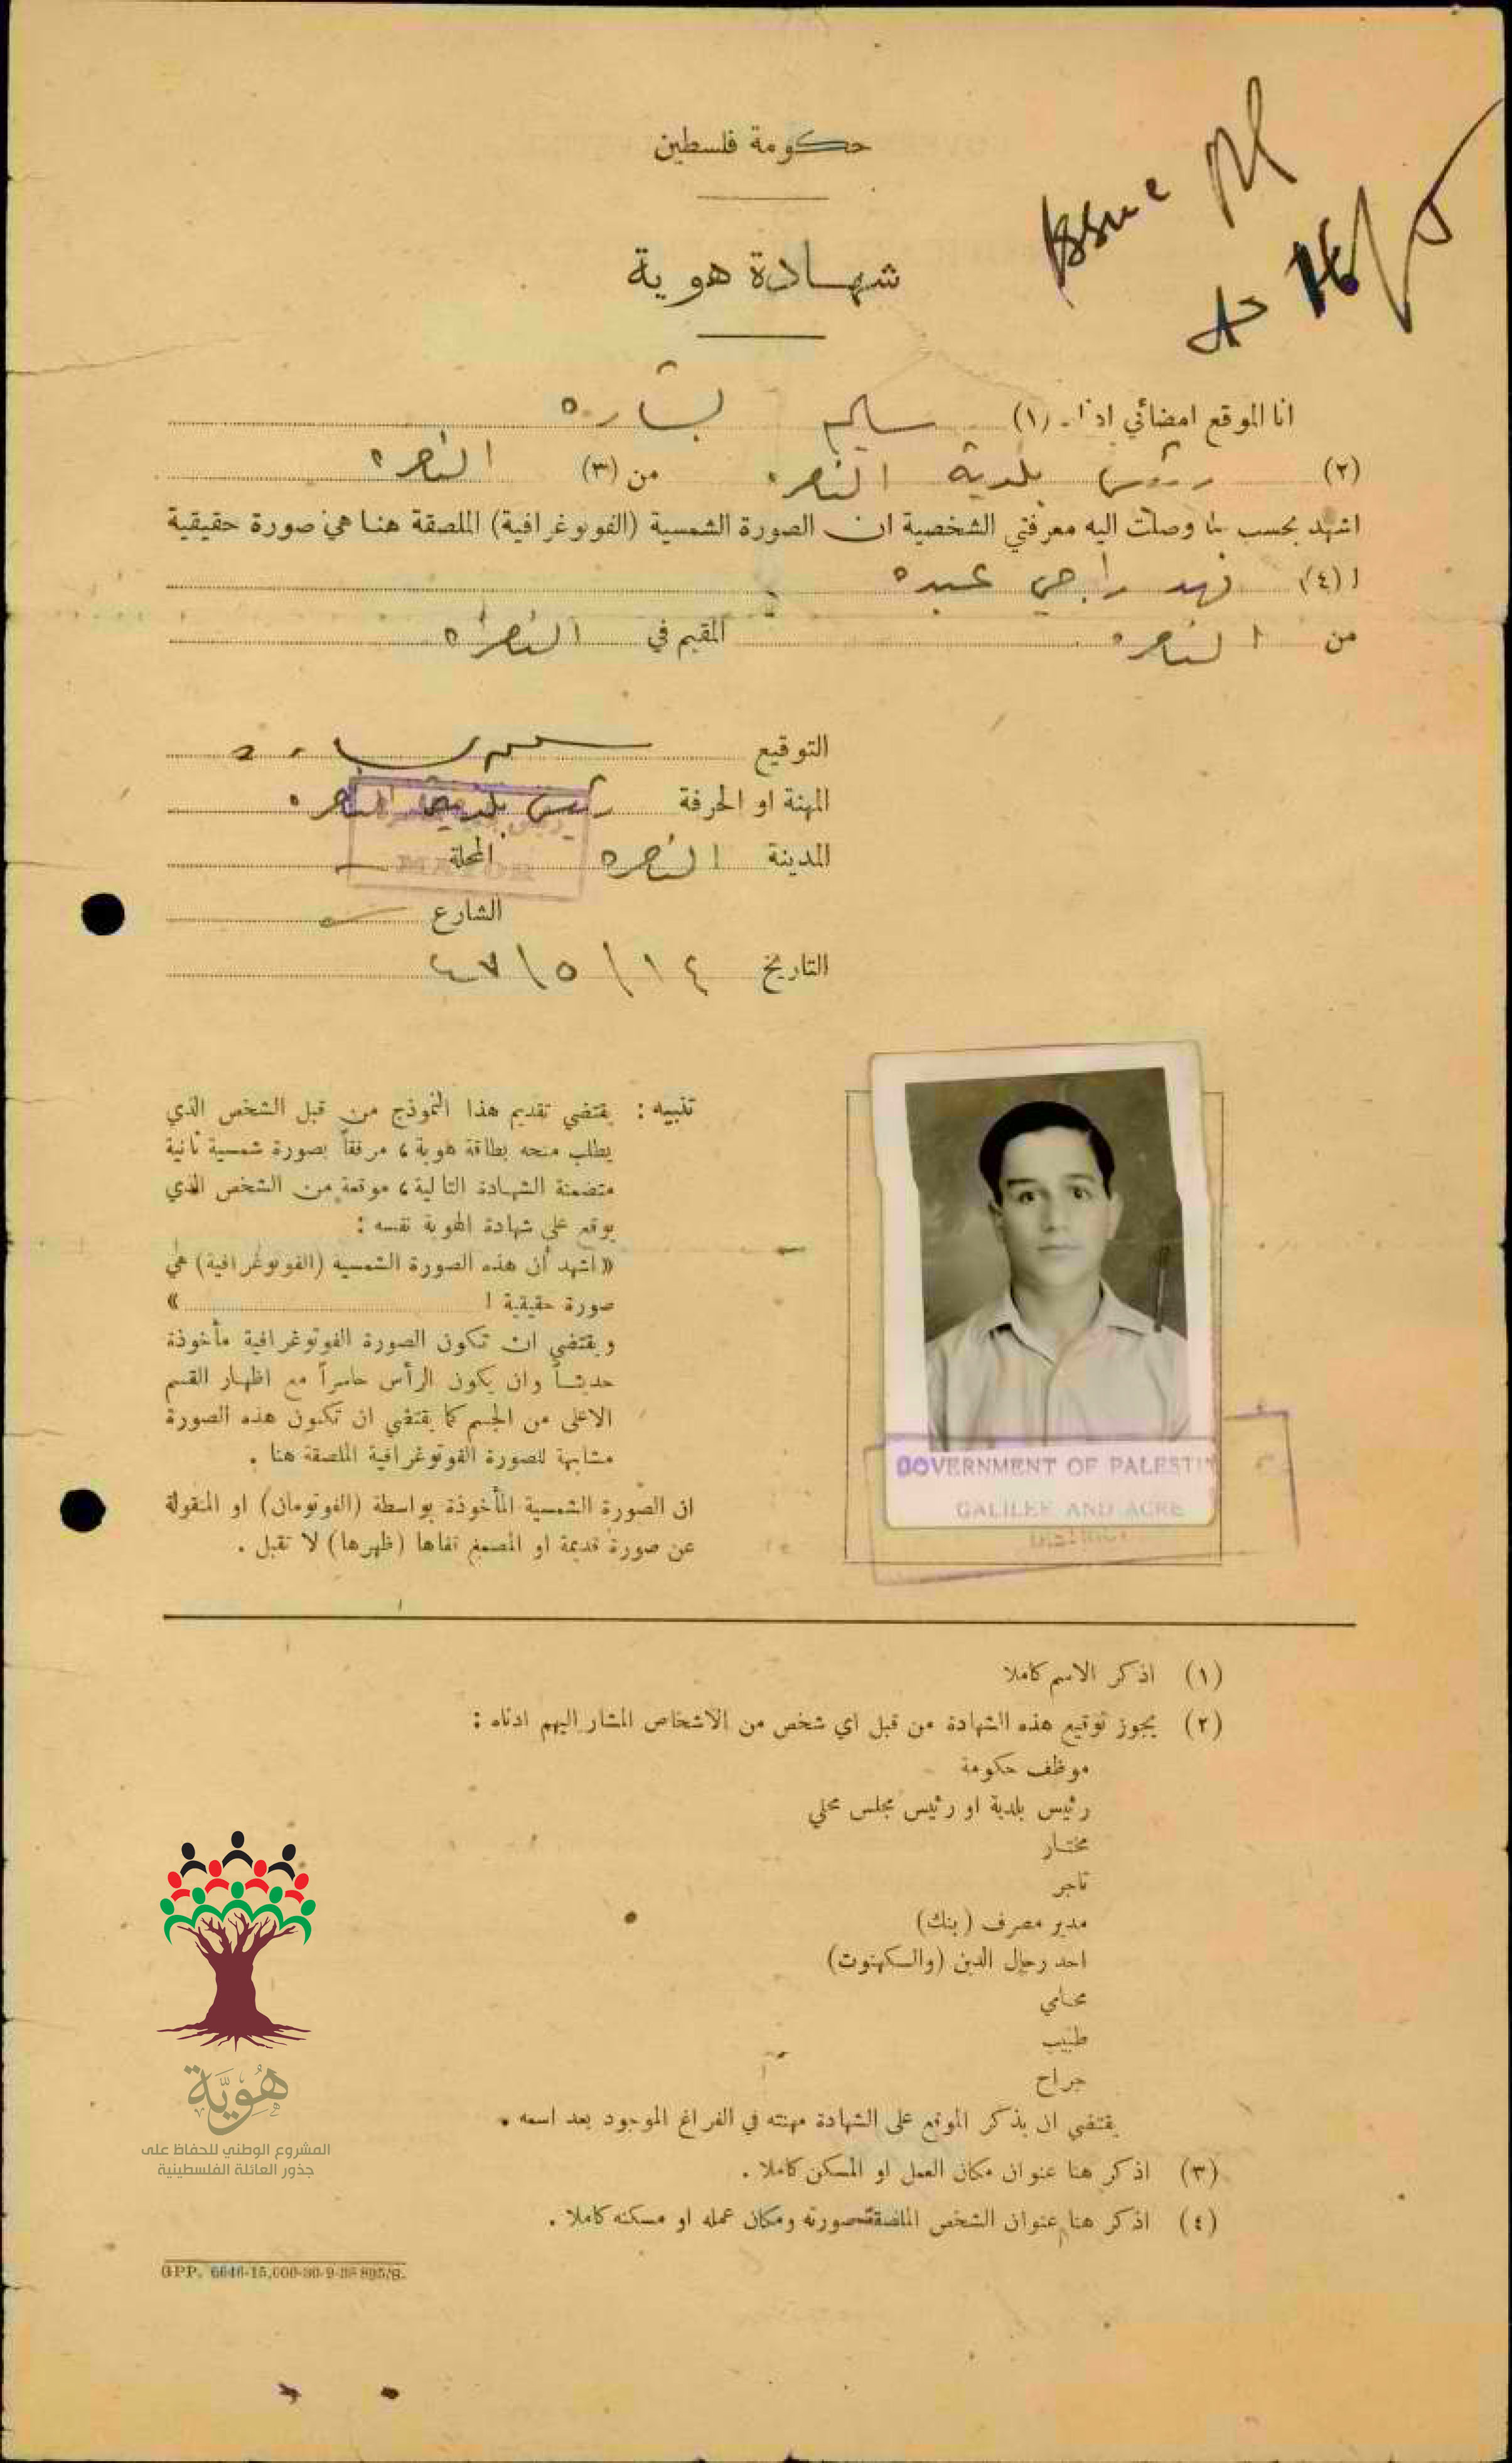 حكومة فلسطين
شهادة هوية
Issue
16/5
انا الموقع امضائي ادناه (١) سليم بشاره
(٢) رئيس بلدية الناصره من (٣) الناصره
اشهد بحسب ما وصلت اليه معرفتي الشخصية ان الصورة الشمسية (الفوتوغرافية) الملصقة هنا هي صورة حقيقية
ا (٤) فهد راجي عبده
من الناصره المقيم في الناصره
التوقيع سليم بشاره
المهنة او الحرفة رئيس بلدية الناصره
المدينة الناصره المحلة
MAYOR
الشارع
التاريخ ١٤/٥/٤٧
تنبيه : يقتضي تقديم هذا النموذج من قبل الشخص الذي
يطلب منحه بطاقة هوية ، مرفقاً بصورة شمسية ثانية
متضمنة الشهادة التالية ، موقعة من الشخص الذي
يوقع على شهادة الهوية نفسه :
«اشهد أن هذه الصورة الشمسية (الفوتوغرافية) هي
صورة حقيقية ا »
ويقتضي ان تكون الصورة الفوتوغرافية مأخوذة
حديثاً وان يكون الرأس حاسراً مع اظهار القسم
الاعلى من الجسم كما يقتضي ان تكون هذه الصورة
مشابهة للصورة الفوتوغرافية الملصقة هنا .
ان الصورة الشمسية المأخوذة بواسطة (الفوتومان) او المنقولة
عن صورة قديمة او المصمغ قفاها (ظهرها) لا تقبل .
GOVERNMENT OF PALESTIN
GALILEE AND ACRE
DISTRICT
(١) اذكر الاسم كاملا
(٢) يجوز توقيع هذه الشهادة من قبل اي شخص من الاشخاص المشار اليهم ادناه :
موظف حكومة
رئيس بلدية او رئيس مجلس محلي
مختار
تاجر
مدير مصرف (بنك)
احد رجال الدين (والكهنوت)
محامي
طبيب
جراح
يقتضي ان يذكر الموقع على الشهادة مهنته في الفراغ الموجود بعد اسمه .
(٣) اذكر هنا عنوان مكان العمل او المسكن كاملا .
(٤) اذكر هنا عنوان الشخص الملصقة صورته ومكان عمله او مسكنه كاملا .
هُوِيَّة
المشروع الوطني للحفاظ على
جذور العائلة الفلسطينية
GPP. 6646-15,000-30-9-38 895/S.